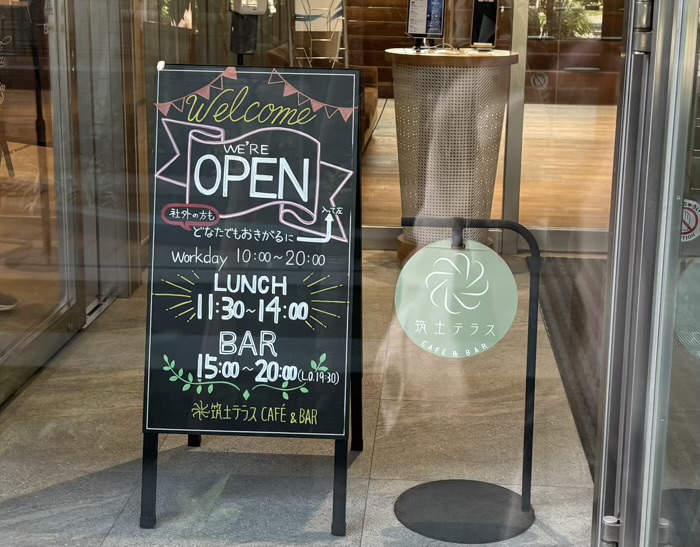 Welcome
WE'RE
OPEN
社外の方も
入って左
どなたでもおきがるに
Workday 10:00~20:00
LUNCH
11:30~14:00
BAR
15:00~20:00(L.O.19:30)
筑土テラス CAFÉ & BAR
筑土テラス
CAFE & BAR